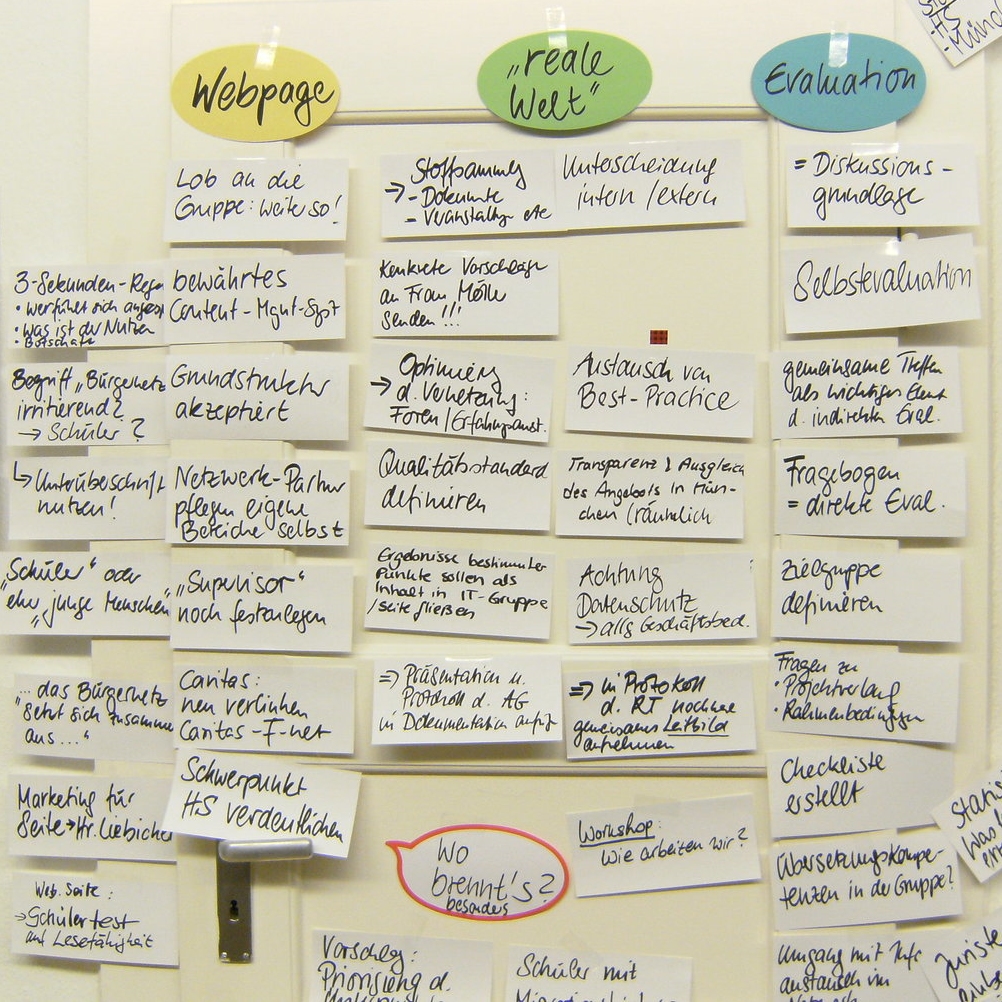 Webpage
„reale
Welt“
Evaluation
Lob an die
Gruppe: weiter so!
3-Sekunden-Rege
• wer fühlt sich anges
• was ist der Nutzen
• Botschaft
bewährtes
Content-Mgmt-Syst
Begriff „Bürgernetz
irritierend?
→ Schüler?
Grundstruktur
akzeptiert
↳ Unterüberschrift
nutzen!
Netzwerk-Partner
pflegen eigene
Bereiche selbst
„Schüler“ oder
eher „junge Menschen
„Supervisor“
noch festzulegen
„... das Bürgernetz
setzt sich zusammen
aus ...“
Caritas:
neu verlinken
Caritas-F-net
Marketing für
Seite → Hr. Liebich
Schwerpunkt
HS verdeutlichen
Web. Seite:
→ Schülertest
auf Lesefähigkeit
→ Stoffsammlg
- Dokumente
- Veranstaltgn etc
Unterscheidung
intern / extern
Konkrete Vorschläge
an Frau
senden!!!
→ Optimierg
d. Vernetzung:
Foren/Erfahrungsaust.
Austausch von
Best-Practice
Qualitätsstandard
definieren
Transparenz & Ausgleich
des Angebots in Mün-
chen (räumlich
Ergebnisse bestimmter
Punkte sollen als
Inhalt in IT-Gruppe
/seite fließen
Achtung
Datenschutz
→ allg Geschäftsbed.
⇒ Präsentation u.
Protokoll d. AG
in Dokumentation
⇒ in Protokoll
d. RT nochmal
gemeinsames Leitbild
aufnehmen
Wo
brennt's?
besonders
Workshop:
Wie arbeiten wir?
Vorschlag:
Priorisierg d.
Schüler mit
= Diskussions-
grundlage
Selbstevaluation
gemeinsame Treffen
als wichtiges Elem
d. indirekten Eval.
Fragebogen
= direkte Eval.
Zielgruppe
definieren
Fragen zu
• Projektverlauf
• Rahmenbedingungen
Checkliste
erstellt
Übersetzungskompe-
tenzen in der Gruppe?
Umgang mit Info
austausch im
Statis
Was
Juriste